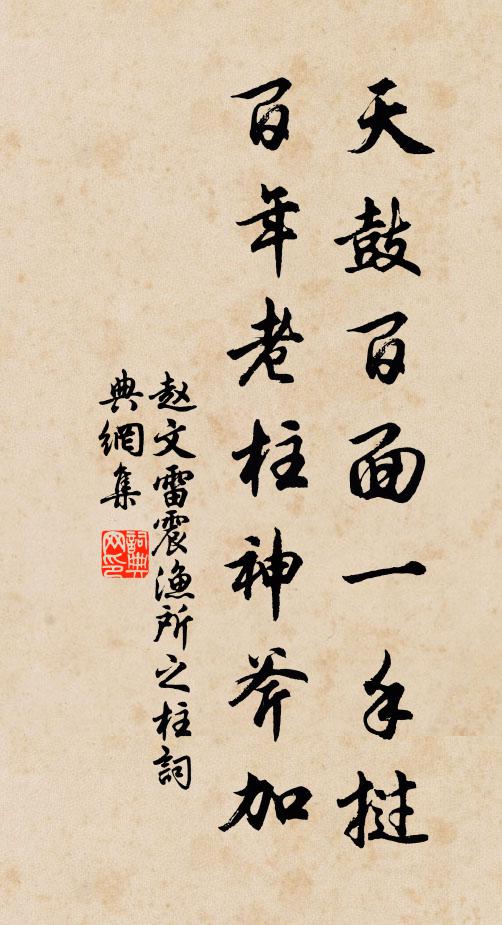 天鼓百面一手挝
百年老柱神斧加
赵文雷震渔所之柱詞
典網集
詞典
网印